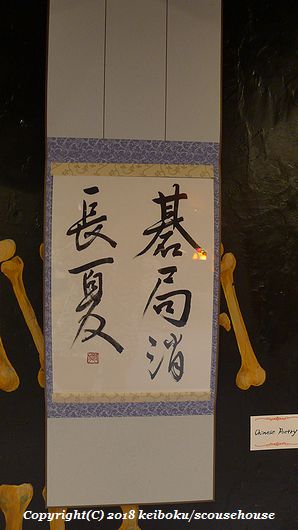 碁局消
長夏
Chinese Poetry
Copyright(C) 2018 keiboku/scousehouse